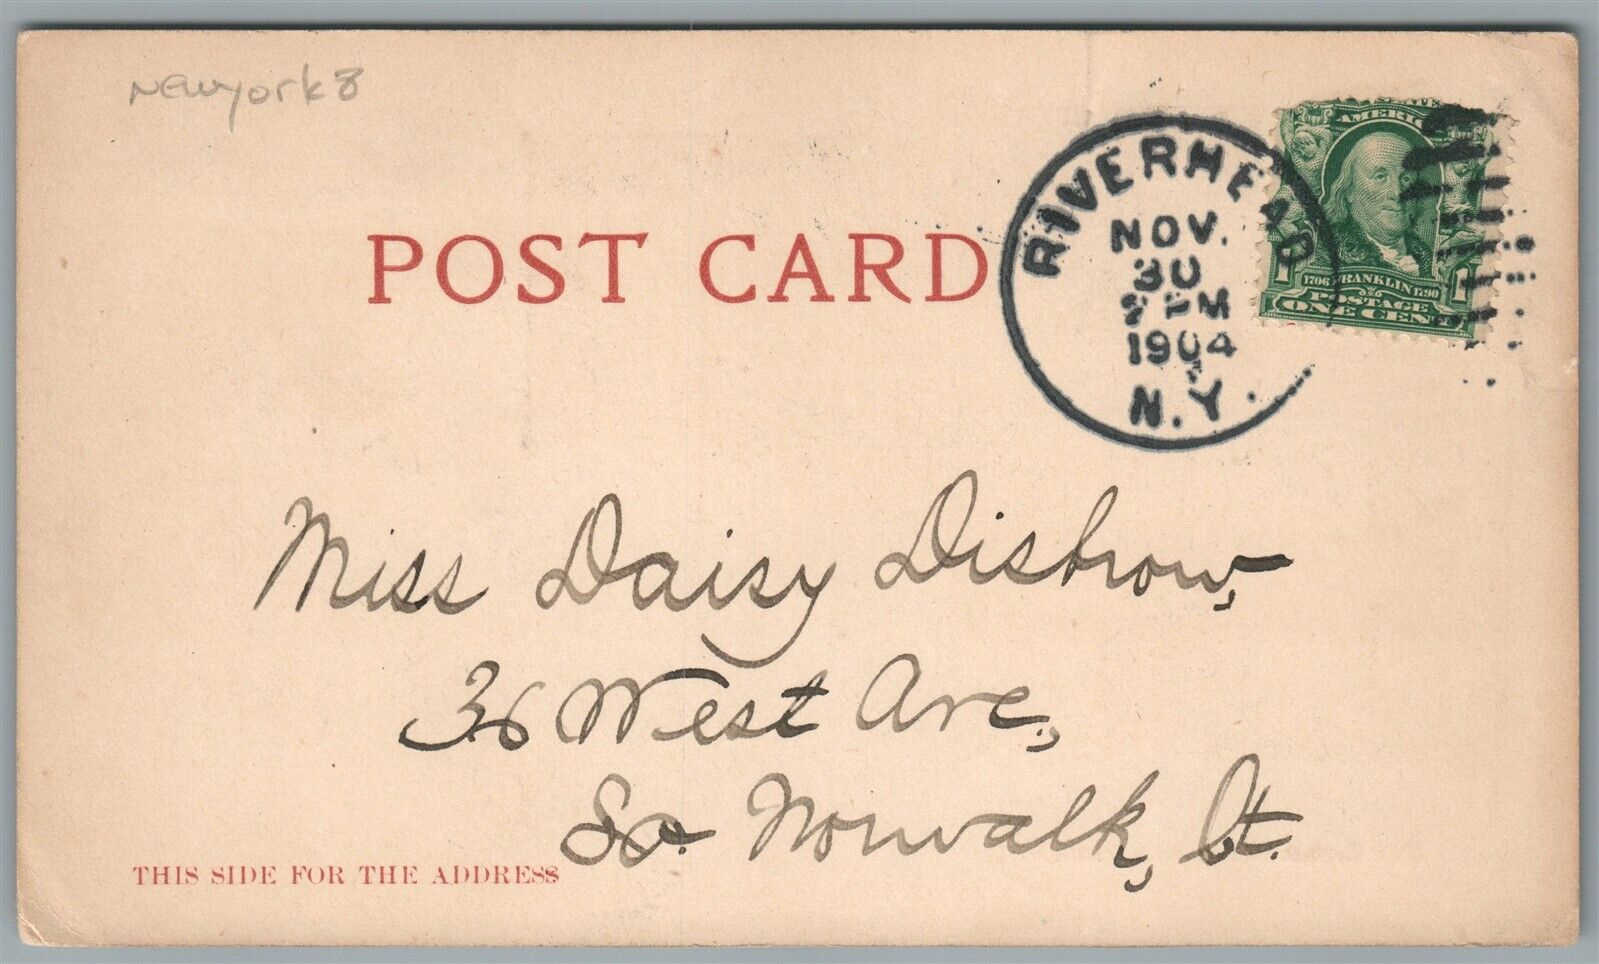 New york 8
POST CARD
RIVERHEAD
NOV.
30
PM
1904
N.Y.
AMERICA
1706 FRANKLIN 1790
POSTAGE
1 ONE CENT 1
Miss Daisy Disbrow,
36 West Ave,
So. Norwalk, Ct.
THIS SIDE FOR THE ADDRESS